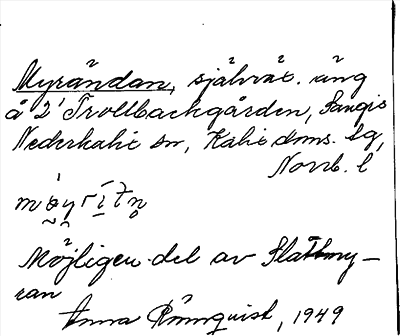 Myrändan, självst. äng
å 2¹ Trollbackgården, Sangis
Nederkalix sn, Kalix doms. tg,
Norrb. l
Möjligen del av Slåttmy-
ran
Anna Rönnquist, 1949